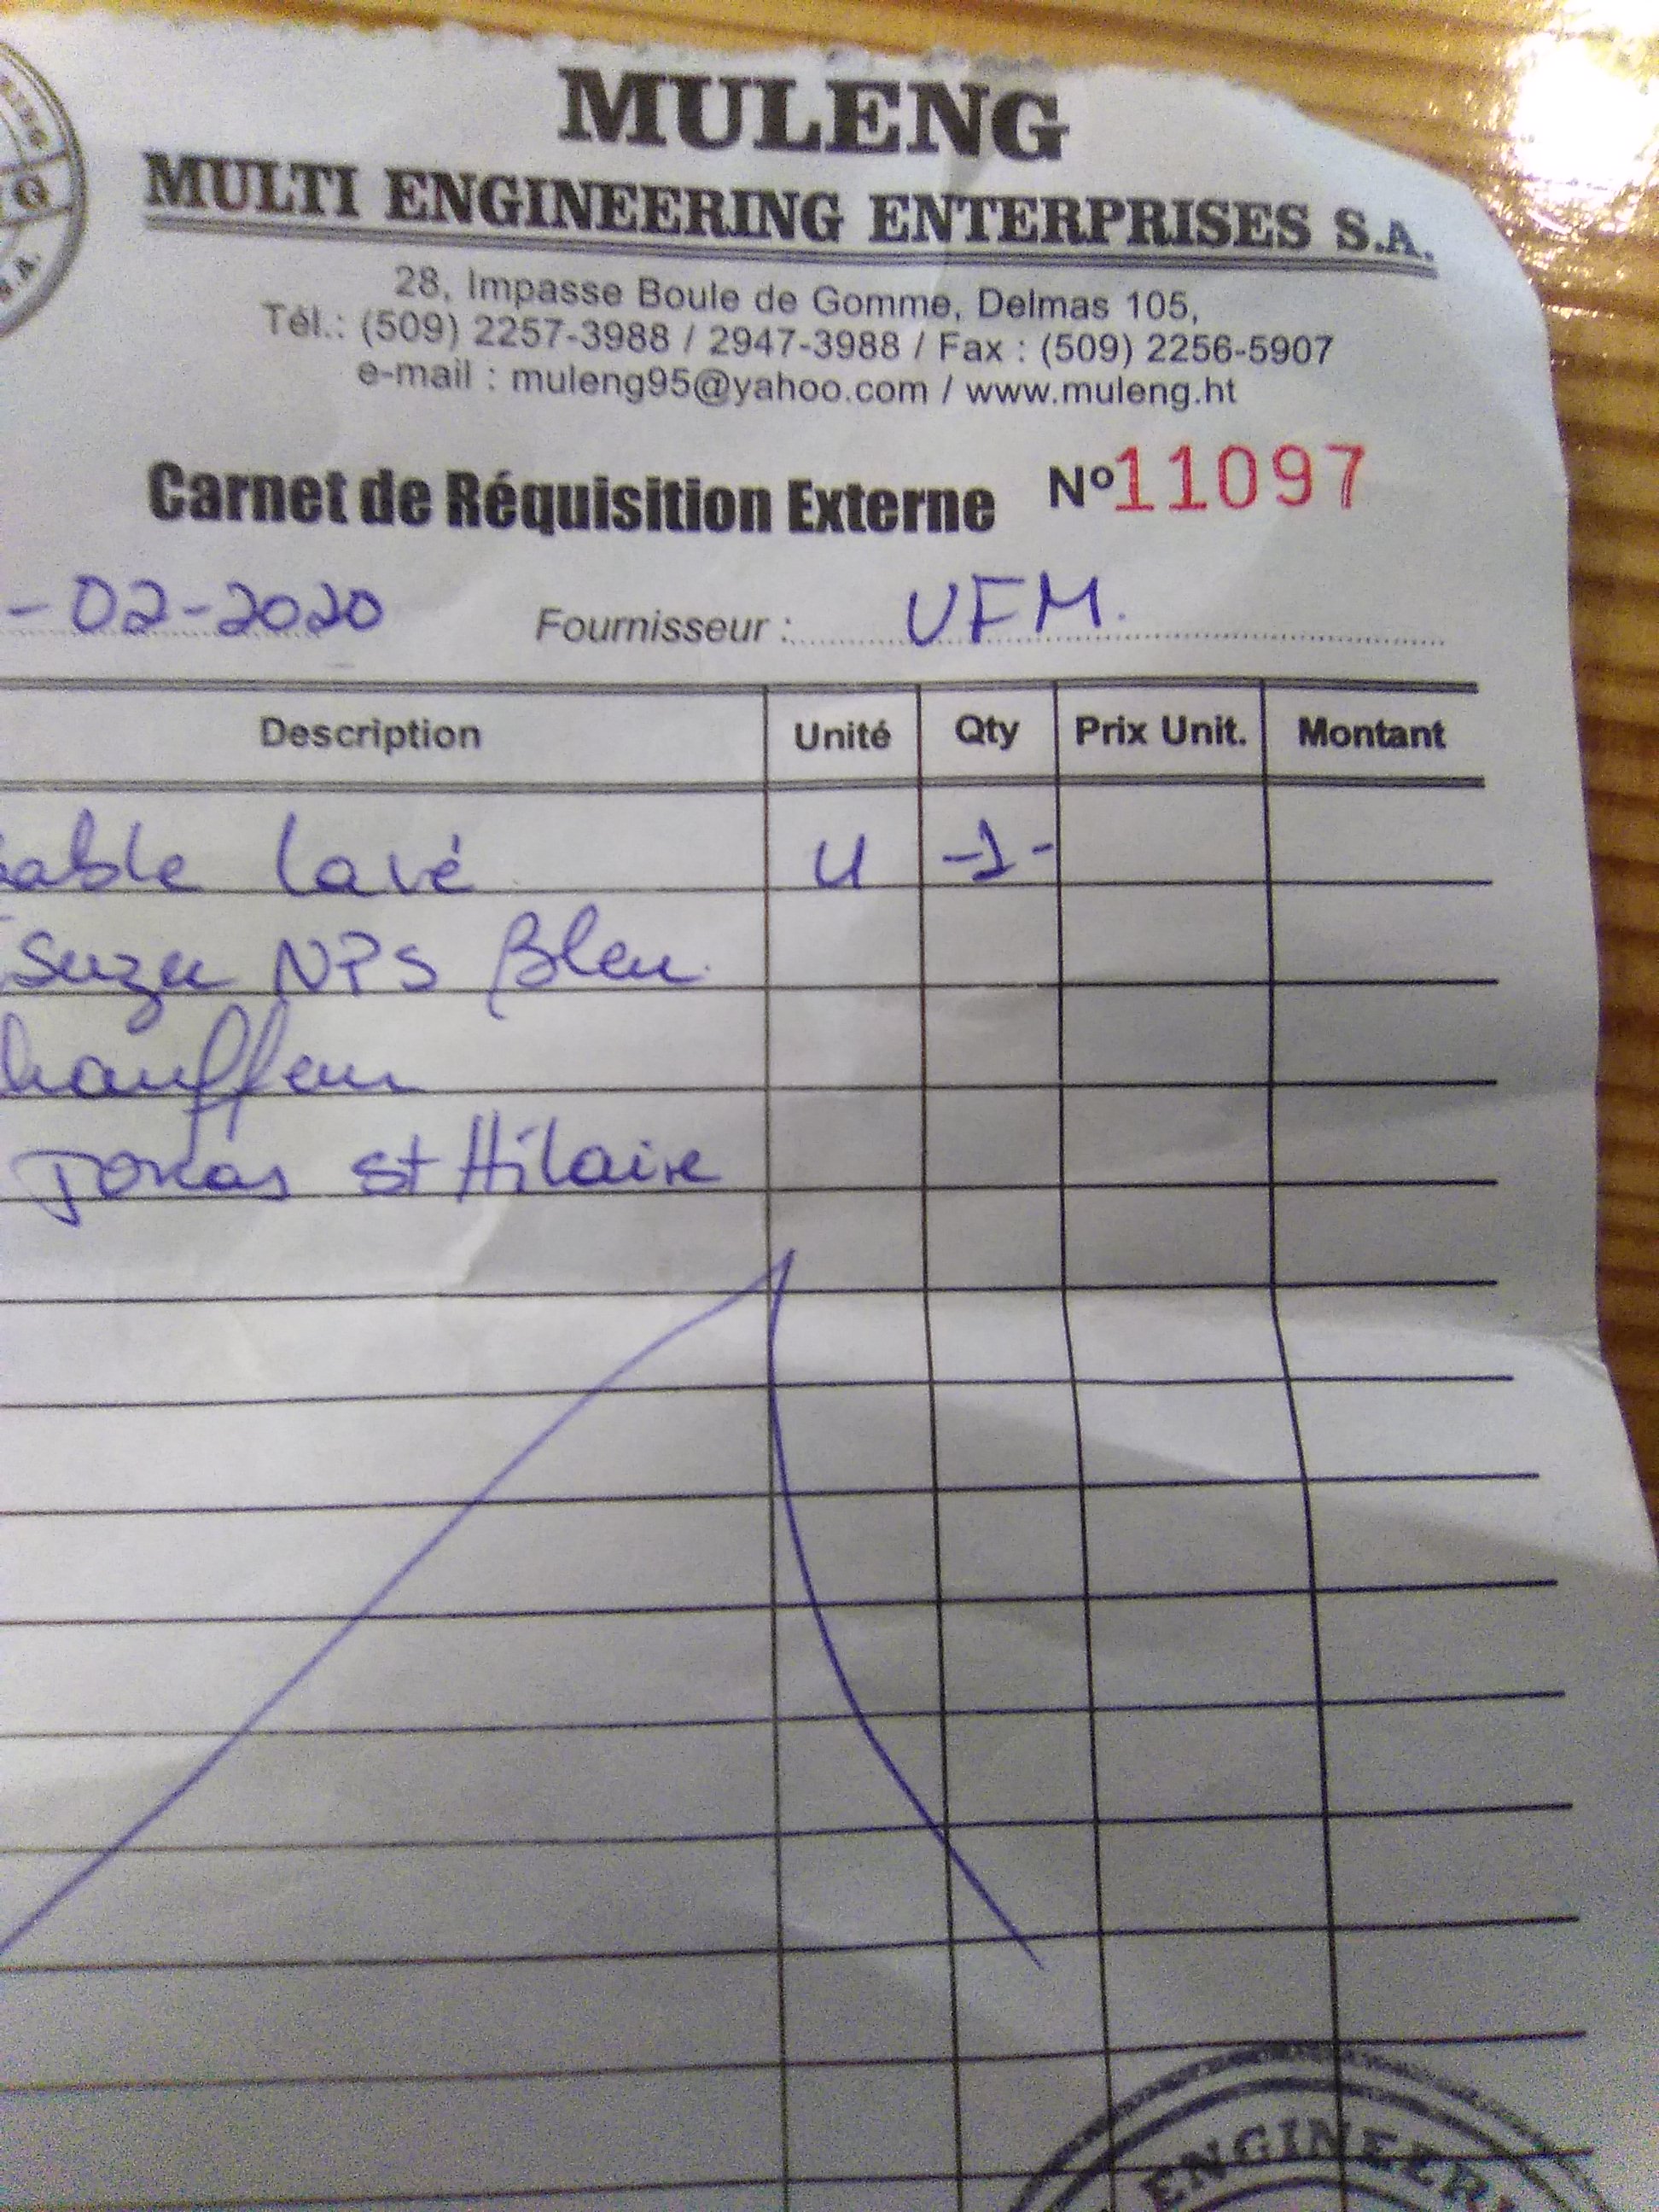 MULENG
MULTI ENGINEERING ENTERPRISES S.A.
28, Impasse Boule de Gomme, Delmas 105,
Tél.: (509) 2257-3988 / 2947-3988 / Fax : (509) 2256-5907
e-mail : muleng95@yahoo.com / www.muleng.ht
Carnet de Réquisition Externe Nº 11097
-02-2020 Fournisseur : UFM.
Description Unité Qty Prix Unit. Montant
able lavé U -1-
Suzu NPS Bleu
hauffeur
Jonas St Hilaire
ENGINEER